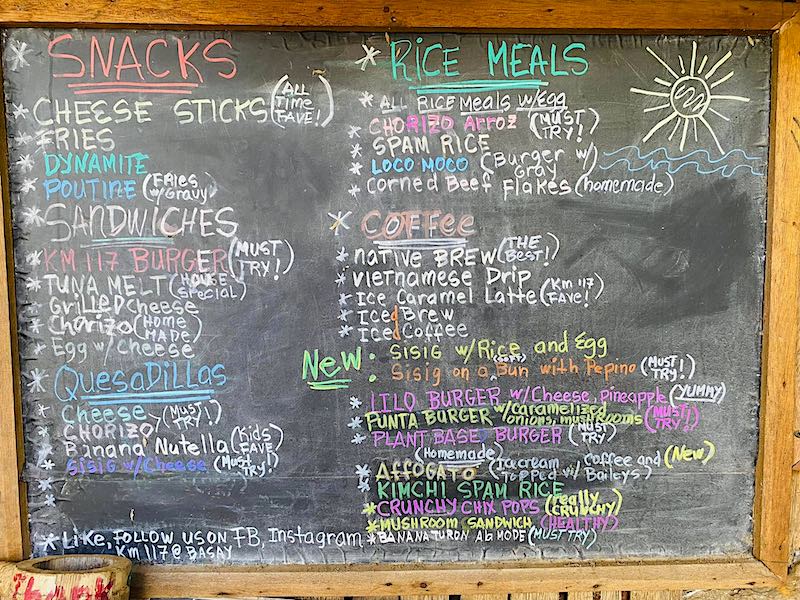 SNACKS
CHEESE STICKS (ALL TIME FAVE!)
FRIES
DYNAMITE
POUTINE (FRIES W/GRAVY)
SANDWICHES
KM 117 BURGER (MUST TRY!)
TUNA MELT (HOUSE SPECIAL)
GriLLED cheese
Chorizo (HOME MADE)
Egg w/cheese
QuesaDiLLas
Cheese - (MUST TRY!)
CHORIZO
Banana Nutella (Kids FAVE)
SISIG w/Cheese (Must TRY!)
Like, FOLLOW US ON FB, Instagram
Km 117 @ BASAY
RICE MEALS
ALL RICE Meals w/Egg
CHORIZO Arroz (MUST TRY!)
SPAM RICE
LOCO MOCO (Burger w/ Gray
Corned Beef Flakes (homemade)
COFFee
naTIVE BREW (THE Best!)
Vietnamese Drip
Ice Caramel Latte (Km 117 FAVE!)
Iced Brew
Iced Coffee
New: SISIG w/Rice and Egg
SISIG on a Bun with Pepino (MUST TRY!)
LILO BURGER w/Cheese, pineapple (YUMMY)
PUNTA BURGER w/caramelized onions, mushrooms (MUST TRY!)
PLANT BASE BURGER (MUST TRY)
(Homemade)
AFFOGATO (Icecream, Coffee and Topped w/ Baileys) (New)
KIMCHI SPAM RICE
CRUNCHY CHIX POPS (really CRUNCHY)
MUSHROOM SANDWICH (HEALTHY)
BANANA TURON ALA MODE (MUST TRY)